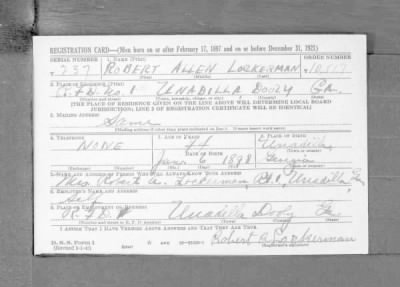 REGISTRATION CARD—(Men born on or after February 17, 1897 and on or before December 31, 1921)
SERIAL NUMBER 1. NAME (Print) ORDER NUMBER
737 ROBERT ALLEN LOCKERMAN
(First) (Middle) (Last)
2. PLACE OF RESIDENCE (Print)
R.F.D. No. 1 UNADILLA DOOLY GA.
[THE PLACE OF RESIDENCE GIVEN ON THE LINE ABOVE WILL DETERMINE LOCAL BOARD
JURISDICTION; LINE 2 OF REGISTRATION CERTIFICATE WILL BE IDENTICAL]
3. MAILING ADDRESS
Same
[Mailing address if other than place indicated on line 2. If same insert word same]
4. TELEPHONE 5. AGE IN YEARS 6. PLACE OF BIRTH
NONE 44 Unadilla
DATE OF BIRTH (Town or county)
Jan. 6 1898 Georgia
(Exchange) (Number) (Mo.) (Day) (Yr.) (State or country)
7. NAME AND ADDRESS OF PERSON WHO WILL ALWAYS KNOW YOUR ADDRESS
Mrs. Robert A. Lockerman Rt 1, Unadilla Ga
8. EMPLOYER'S NAME AND ADDRESS
Self
9. PLACE OF EMPLOYMENT OR BUSINESS
R.F.D. 1 Unadilla Dooly Ga.
(Number and street or R. F. D. number) (Town) (County) (State)
I AFFIRM THAT I HAVE VERIFIED ABOVE ANSWERS AND THAT THEY ARE TRUE.
D. S. S. Form 1
Robert A. Lockerman
(Registrant's signature)